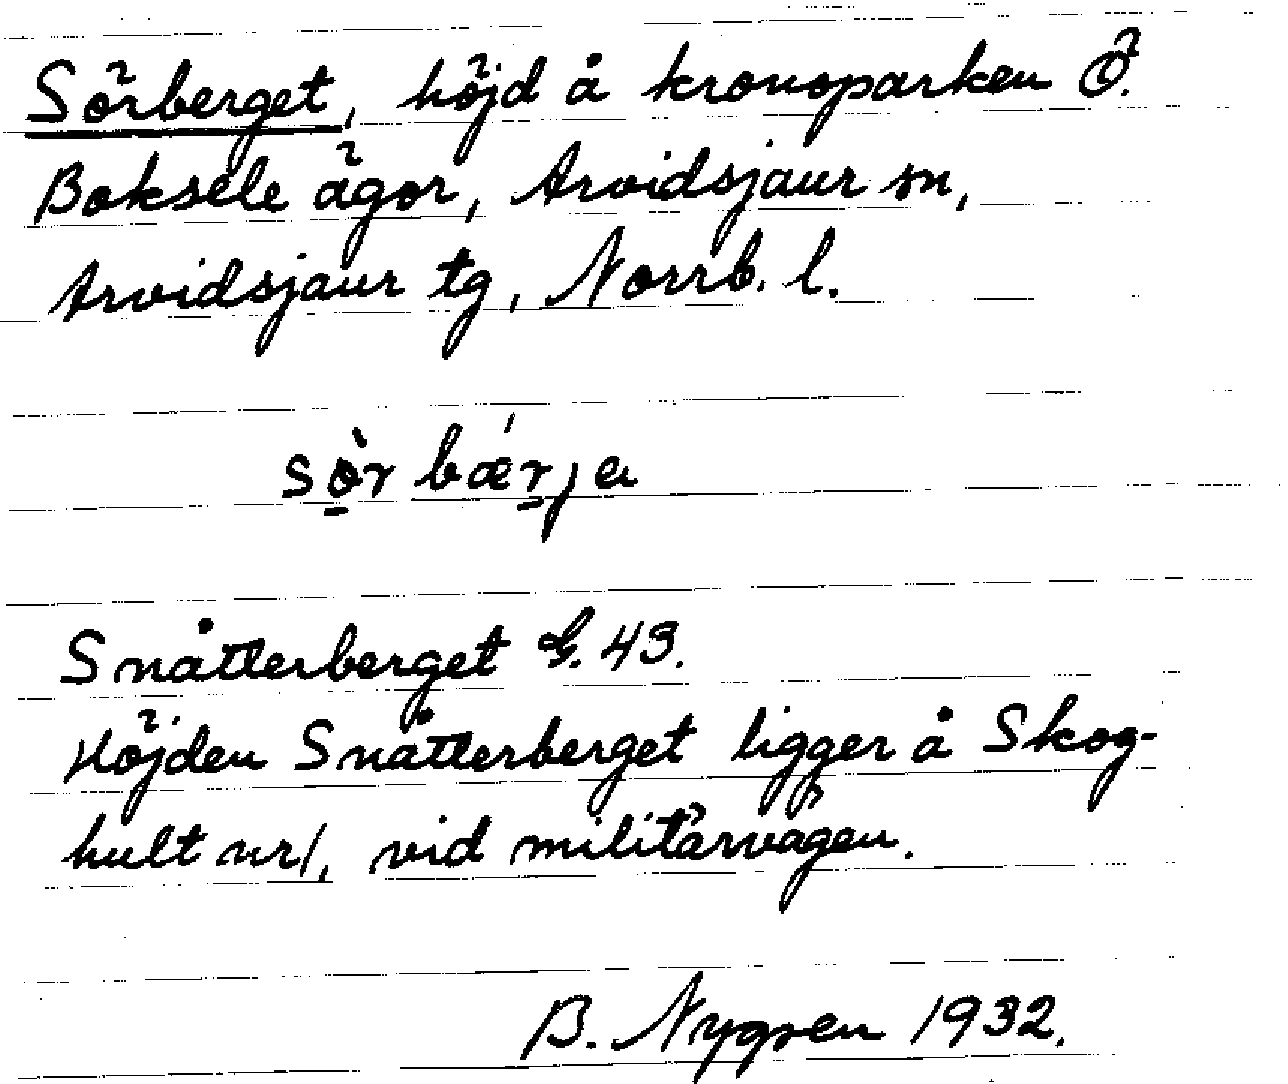 Sörberget, höjd å kronoparken Ö.
Boksele ägor, Arvidsjaur sn,
Arvidsjaur tg, Norrb. l.
sø̀r bǽrja
Snåtterberget G. 43.
Höjden Snåtterberget ligger å Skog-
hult nr 1, vid militärvägen.
B. Nygren 1932.